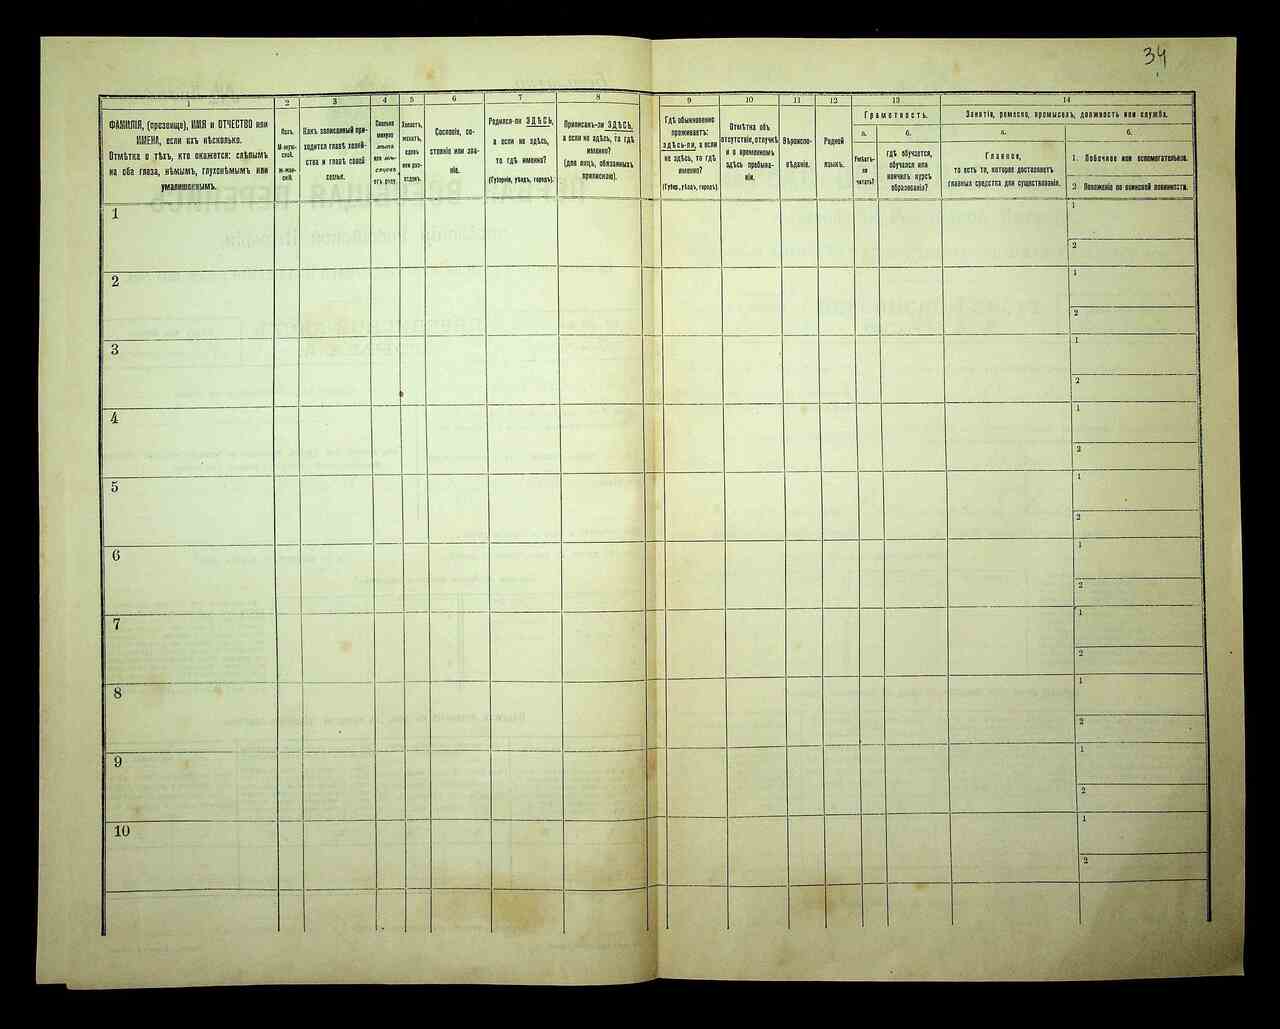 34
1
ФАМИЛІЯ, (прозвище), ИМЯ и ОТЧЕСТВО или
ИМЕНА, если ихъ нѣсколько.
Отмѣтка о тѣхъ, кто окажется: слѣпымъ
на оба глаза, нѣмымъ, глухонѣмымъ или
умалишоннымъ.
2
Полъ.
М-муж-
ской.
Ж-жен-
скій.
3
Какъ записанный при-
ходится главѣ хозяй-
ства и главѣ своей
семьи.
4
Сколько
минуло
лѣтъ
или мѣ-
сяцевъ
отъ роду
5
Холостъ,
женатъ,
вдовъ
или раз-
веденъ.
6
Сословіе, со-
стояніе или зва-
ніе.
7
Родился-ли ЗДѢСЬ,
а если не здѣсь,
то гдѣ именно?
(Губернія, уѣздъ, городъ).
8
Приписанъ-ли ЗДѢСЬ,
а если не здѣсь, то гдѣ
именно?
(для лицъ, обязанныхъ
припискою).
9
Гдѣ обыкновенно
проживаетъ:
здѣсь-ли, а если
не здѣсь, то гдѣ
именно?
(Губер., уѣздъ, городъ).
10
Отмѣтка объ
отсутствіи, отлучкѣ
и о временномъ
здѣсь пребыва-
ніи.
11
Вѣроиспо-
вѣданіе.
12
Родной
языкъ.
13
Грамотность.
а.
Умѣетъ-
ли
читать?
б.
гдѣ обучается,
обучался или
кончилъ курсъ
образованія?
14
Занятіе, ремесло, промыселъ, должность или служба.
а.
Главное,
то есть то, которое доставляетъ
главныя средства для существованія.
б.
1. Побочное или вспомогательное.
2 Положеніе по воинской повинности.
1
1
2
2
1
2
3
1
2
4
1
2
5
1
2
6
1
2
7
1
2
8
1
2
9
1
2
10
1
2